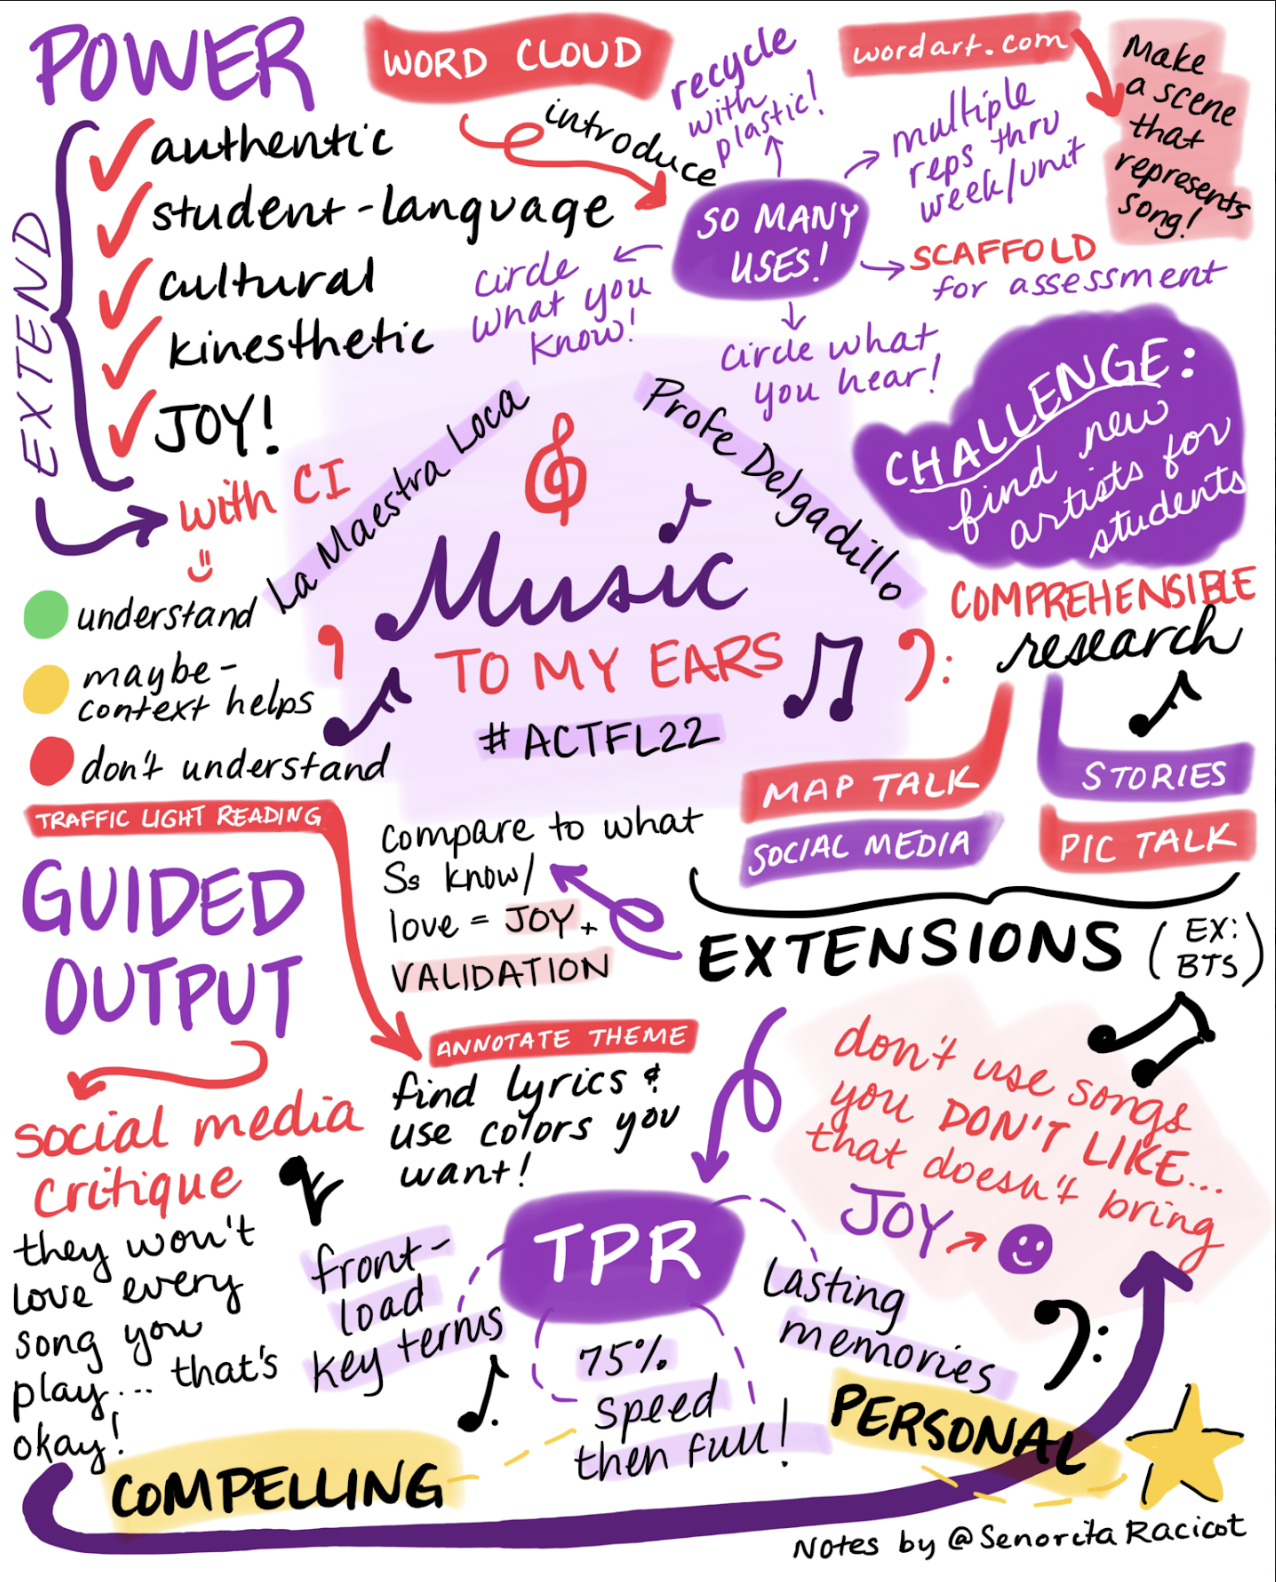 POWER
EXTEND
authentic
student-language
cultural
kinesthetic
JOY!
with CI
WORD CLOUD
introduce
SO MANY
USES!
recycle
with
plastic!
multiple
reps thru
week/unit
SCAFFOLD
for assessment
circle what
you hear!
circle
what you
know!
wordart.com
Make
a scene
that
represents
song!
CHALLENGE:
find new
artists for
students
La Maestra Loca
Profe Delgadillo
Music
TO MY EARS
#ACTFL22
understand
maybe-
context helps
don't understand
TRAFFIC LIGHT READING
COMPREHENSIBLE
research
MAP TALK
STORIES
SOCIAL MEDIA
PIC TALK
EXTENSIONS
(EX:
BTS)
compare to what
Ss know/
love = JOY +
VALIDATION
GUIDED
OUTPUT
ANNOTATE THEME
find lyrics &
use colors you
want!
social media
critique
they won't
love every
song you
play... that's
okay!
TPR
front-
load
key terms
75%
speed
then full!
Lasting
memories
don't use songs
you DON'T LIKE...
that doesn't bring
JOY
COMPELLING
PERSONAL
Notes by @SenoritaRacicot